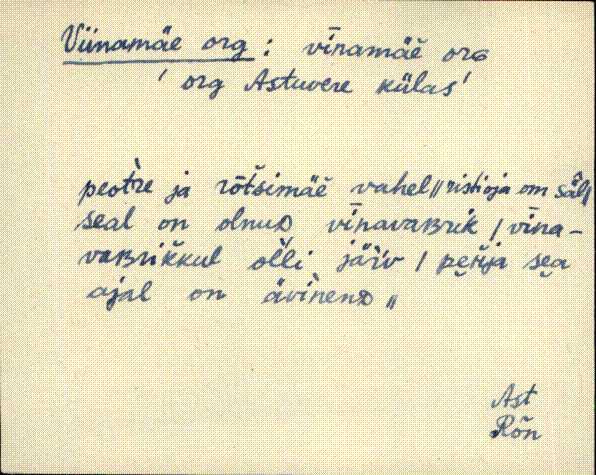 Viinamäe org : vīnamäe̮ orG
' org Astuvere külas '
peot̀re ja rōt̀simäe̮ vahel // ristioja om säl /
seal on olnuD vīnavaBrik / vīna-
vaBrikkul ol̀li jäìv / pe̮rija se̮a
ajal on ävìnenD //
Ast
Rõn